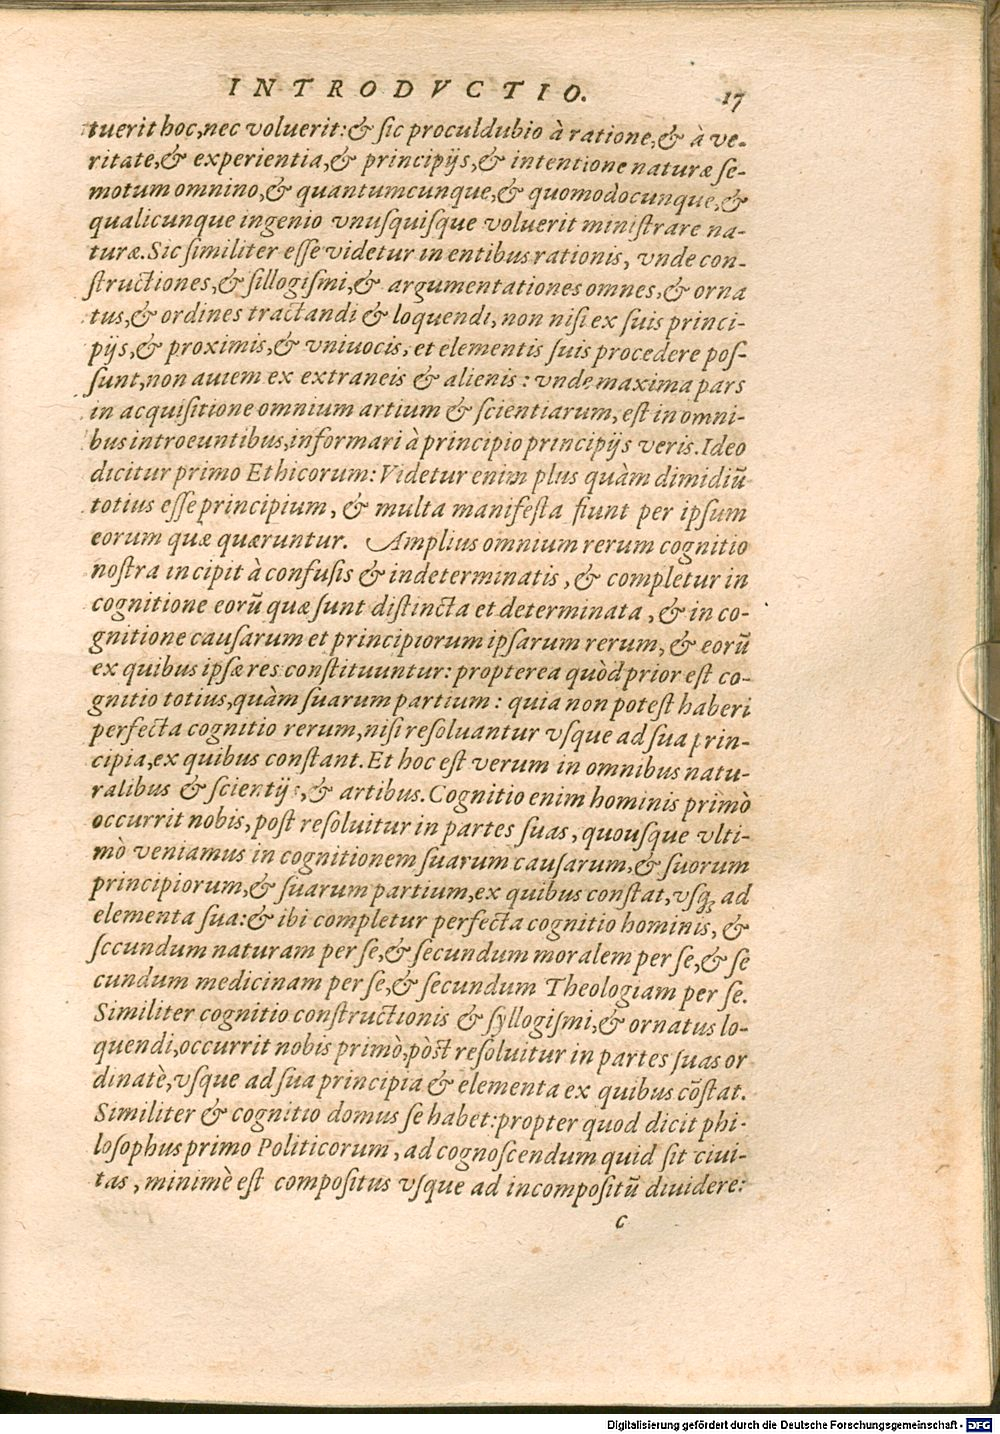 INTRODVCTIO. 17
tuerit hoc, nec voluerit: & sic proculdubio à ratione, & à ve-
ritate, & experientia, & principijs, & intentione naturæ se-
motum omnino, & quantumcunque, & quomodocunque, &
qualicunque ingenio vnusquisque voluerit ministrare na-
turæ. Sic similiter esse videtur in entibus rationis, vnde con-
structiones, & sillogismi, & argumentationes omnes, & orna
tus, & ordines tractandi & loquendi, non nisi ex suis princi-
pijs, & proximis, & vniuocis, et elementis suis procedere pos-
sunt, non autem ex extraneis & alienis: vnde maxima pars
in acquisitione omnium artium & scientiarum, est in omni-
bus introeuntibus, informari à principio principijs veris. Ideo
dicitur primo Ethicorum: Videtur enim plus quàm dimidiũ
totius esse principium, & multa manifesta fiunt per ipsum
eorum quæ quæruntur. Amplius omnium rerum cognitio
nostra incipit à confusis & indeterminatis, & completur in
cognitione eorũ quæ sunt distincta et determinata, & in co-
gnitione causarum et principiorum ipsarum rerum, & eorũ
ex quibus ipsæ res constituuntur: propterea quòd prior est co-
gnitio totius, quàm suarum partium: quia non potest haberi
perfecta cognitio rerum, nisi resoluantur vsque ad sua prin-
cipia, ex quibus constant. Et hoc est verum in omnibus natu-
ralibus & scientijs, & artibus. Cognitio enim hominis primò
occurrit nobis, post resoluitur in partes suas, quousque vlti-
mò veniamus in cognitionem suarum causarum, & suorum
principiorum, & suarum partium, ex quibus constat, vsq; ad
elementa sua: & ibi completur perfecta cognitio hominis, &
secundum naturam per se, & secundum moralem per se, & se
cundum medicinam per se, & secundum Theologiam per se.
Similiter cognitio constructionis & syllogismi, & ornatus lo-
quendi, occurrit nobis primò, pòst resoluitur in partes suas or
dinatè, vsque ad sua principia & elementa ex quibus cõstat.
Similiter & cognitio domus se habet: propter quod dicit phi-
losophus primo Politicorum, ad cognoscendum quid sit ciui-
tas, minimè est compositus vsque ad incompositũ diuidere:
c
Digitalisierung gefördert durch die Deutsche Forschungsgemeinschaft - DFG